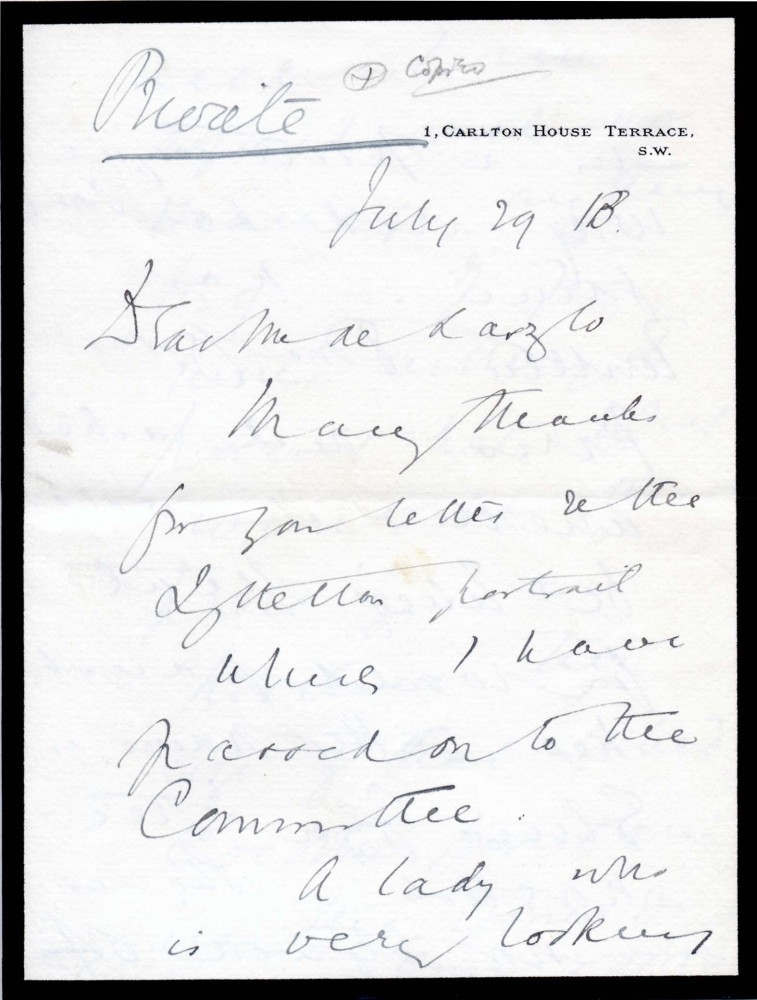 Private
Copies
1, CARLTON HOUSE TERRACE,
S.W.
July 29 13.
Dear Mr de Laszlo
Many thanks
for your letter re the
Lyttelton portrait
which I have
passed on to the
Committee.
A lady who
is very looking